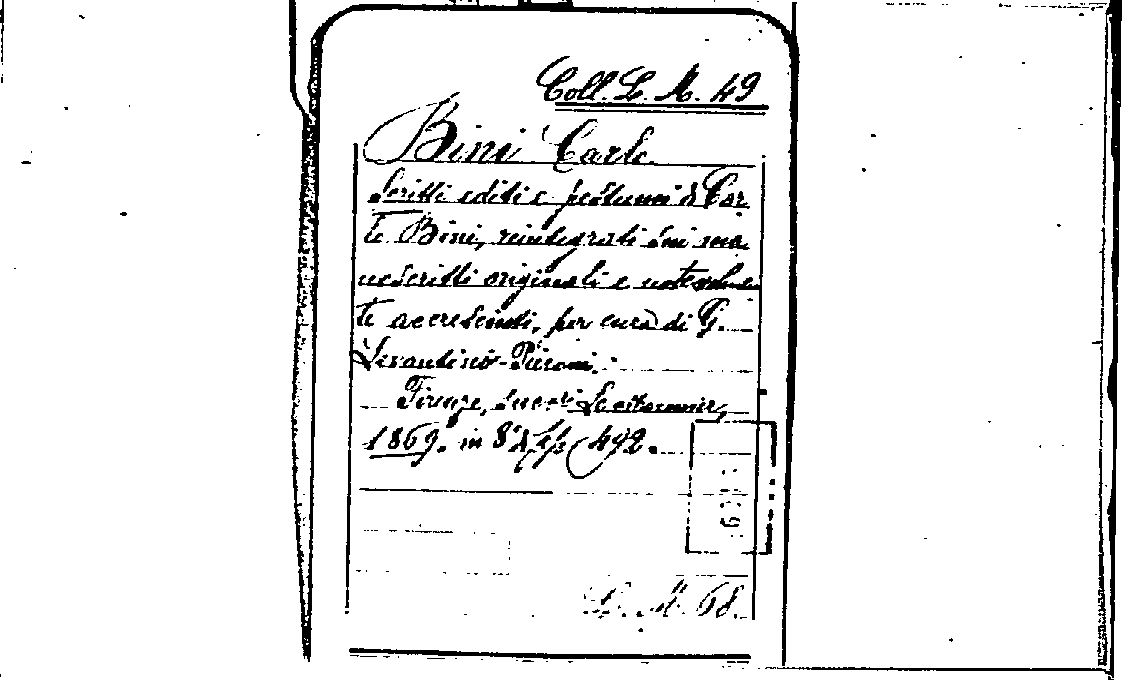 Coll. L. M. 49
Bini Carlo
Scritti editi e postumi di Car
lo Bini, reintegrati sui ma
noscritti originali e notevolmen
te accresciuti, per cura di G.
Levantini-Pieroni.
Firenze, succri Le Monnier,
1869. in 8° pp. 492.
L. M. 68.